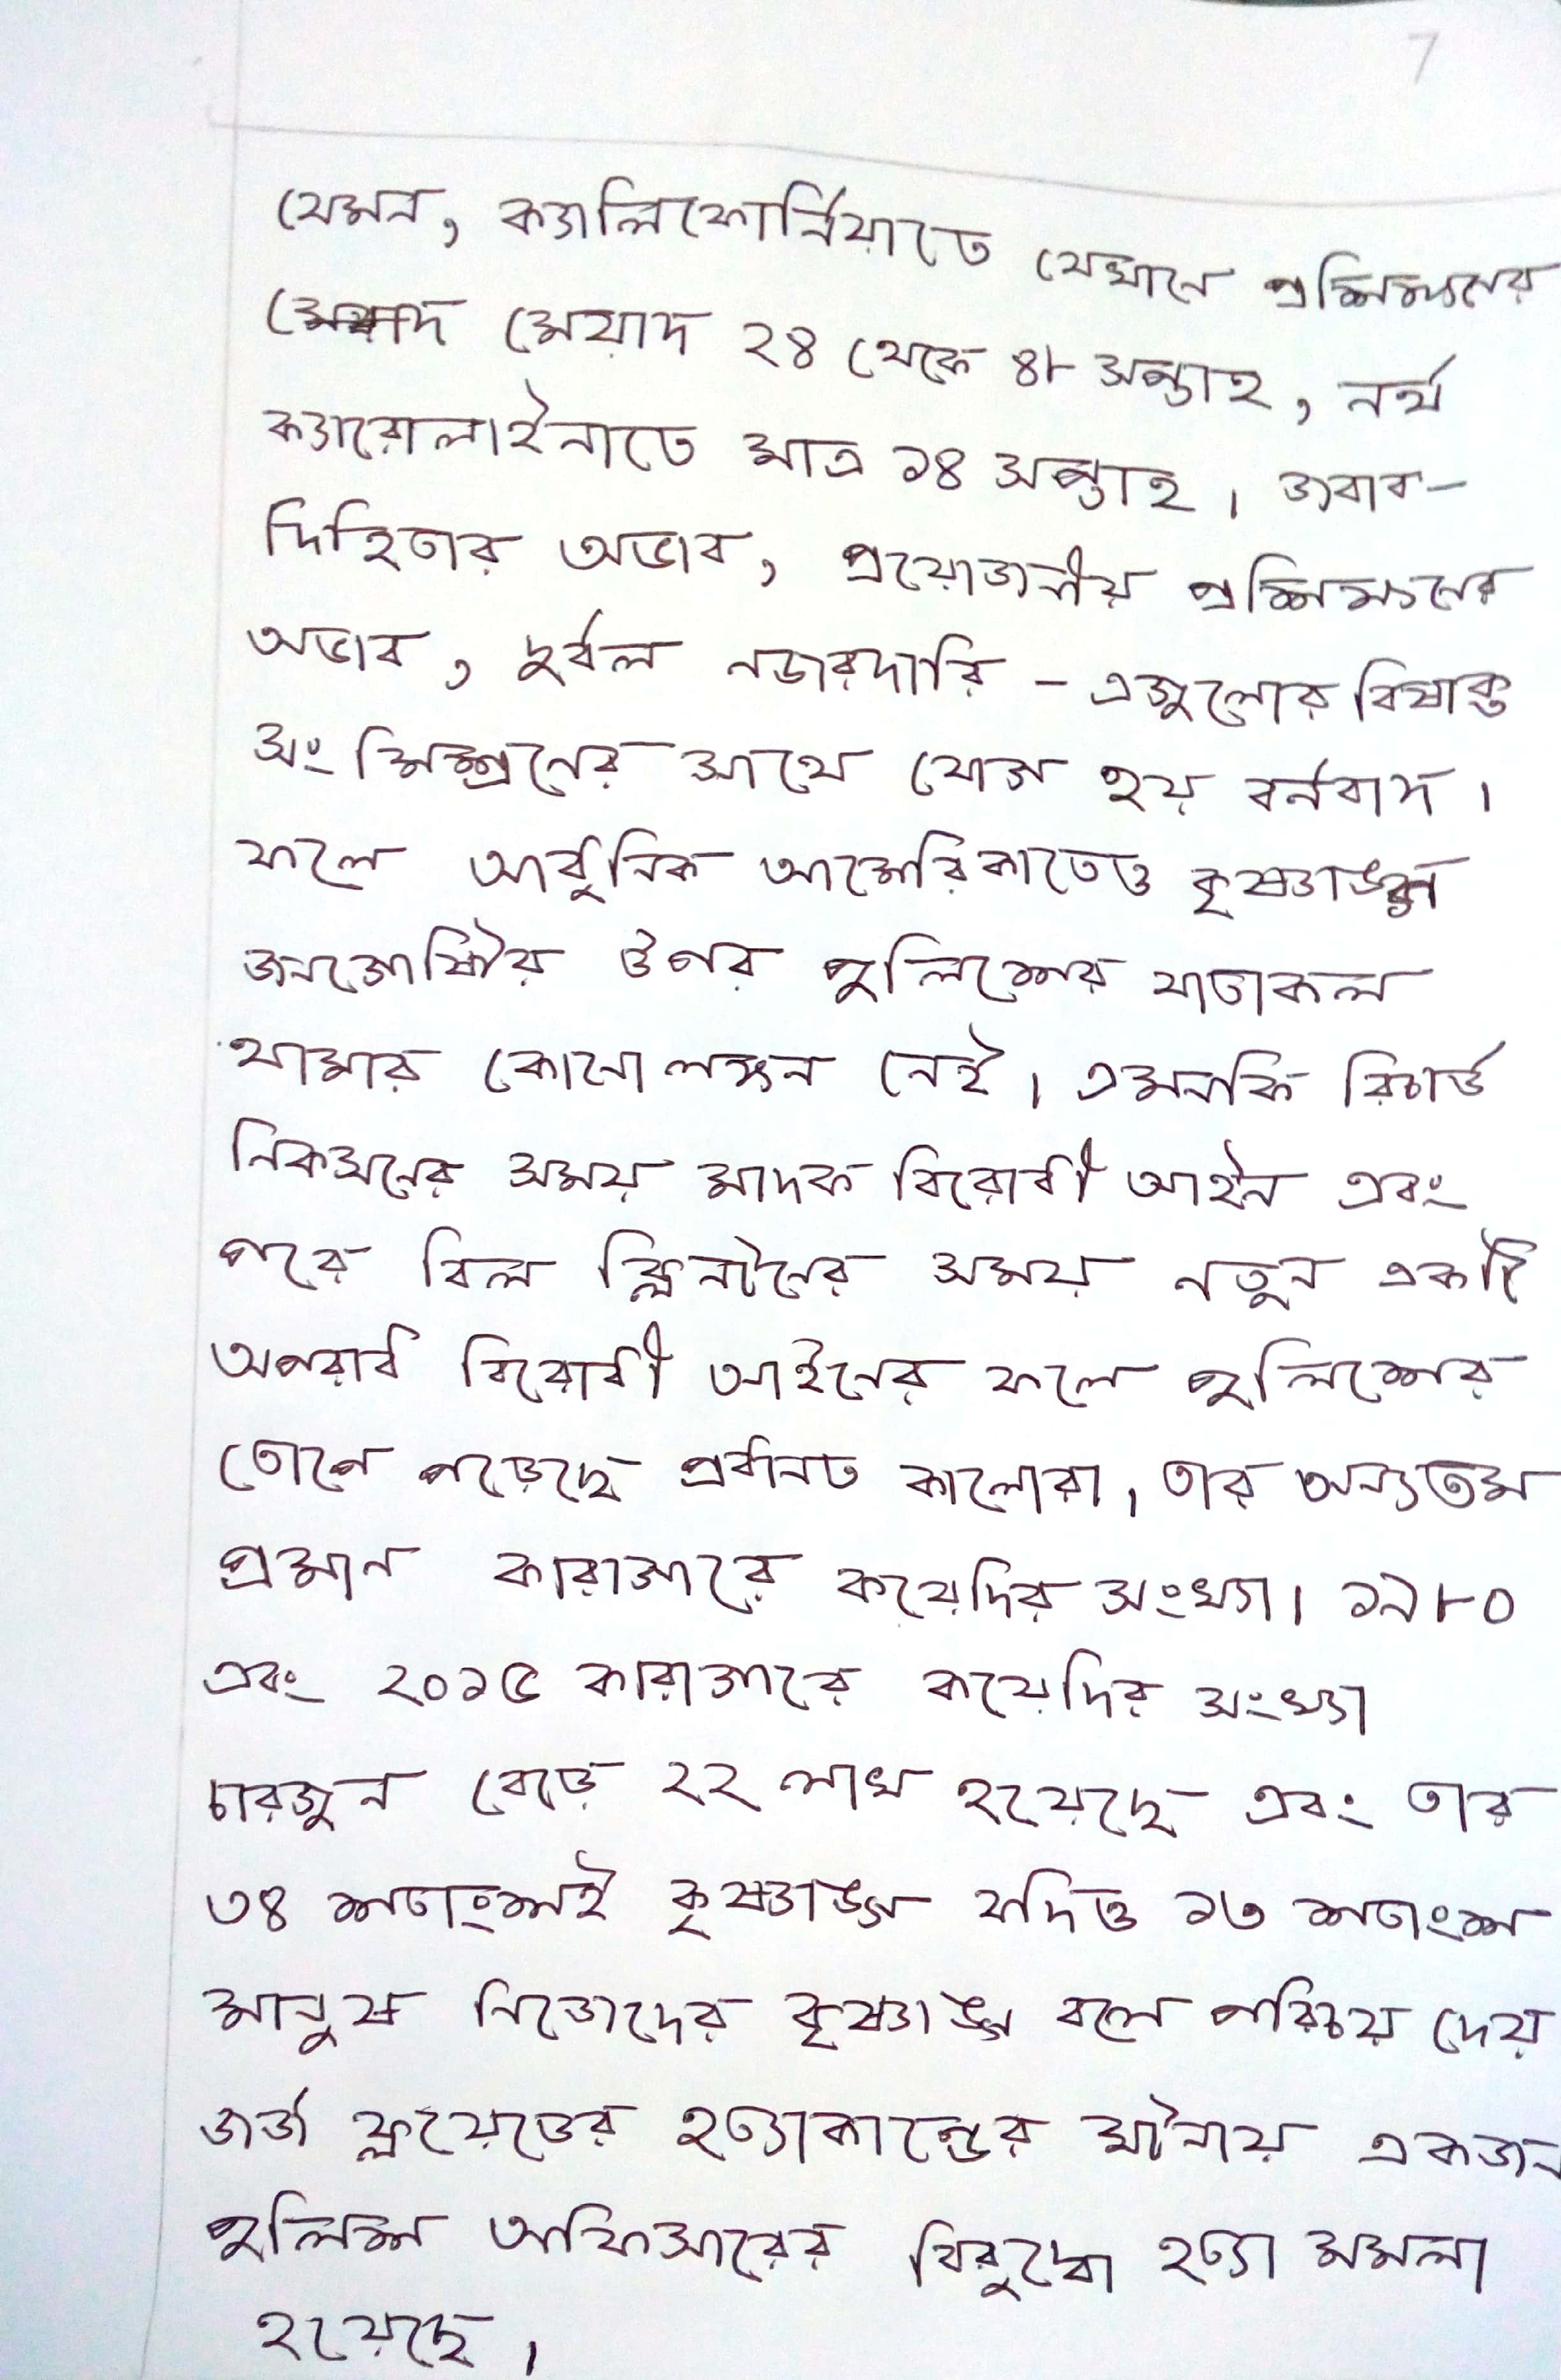 7
যেমন, ক্যালিফোর্নিয়াতে যেখানে প্রশিক্ষনের
মেয়াদ ২৪ থেকে ৪৮ সপ্তাহ, নর্থ
ক্যারোলাইনাতে মাত্র ১৪ সপ্তাহ। জবাব-
দিহিতার অভাব, প্রয়োজনীয় প্রশিক্ষনের
অভাব, দুর্বল নজরদারি - এগুলোর বিষাক্ত
সংমিশ্রনের সাথে যোগ হয় বর্নবাদ।
ফলে আধুনিক আমেরিকাতেও কৃষ্ণাঙ্গ
জনগোষ্ঠীর উপর পুলিশের যাতাকল
থামার কোনো লক্ষন নেই। এমনকি রিচার্ড
নিকসনের সময় মাদক বিরোধী আইন এবং
পরে বিল ক্লিনটনের সময় নতুন একটি
অপরাধ বিরোধী আইনের ফলে পুলিশের
তোপে পড়েছে প্রধানত কালোরা, তার অন্যতম
প্রমান কারাগারে কয়েদির সংখ্যা। ১৯৮০
এবং ২০১৫ কারাগারে কয়েদির সংখ্যা
চারগুন বেড়ে ২২ লাখ হয়েছে এবং তার
৩৪ শতাংশই কৃষ্ণাঙ্গ যদিও ১৩ শতাংশ
মানুষ নিজেদের কৃষ্ণাঙ্গ বলে পরিচয় দেয়
জর্জ ফ্লয়েডের হত্যাকান্ডের ঘটনায় একজন
পুলিশ অফিসারের বিরুদ্ধে হত্যা মমলা
হয়েছে।